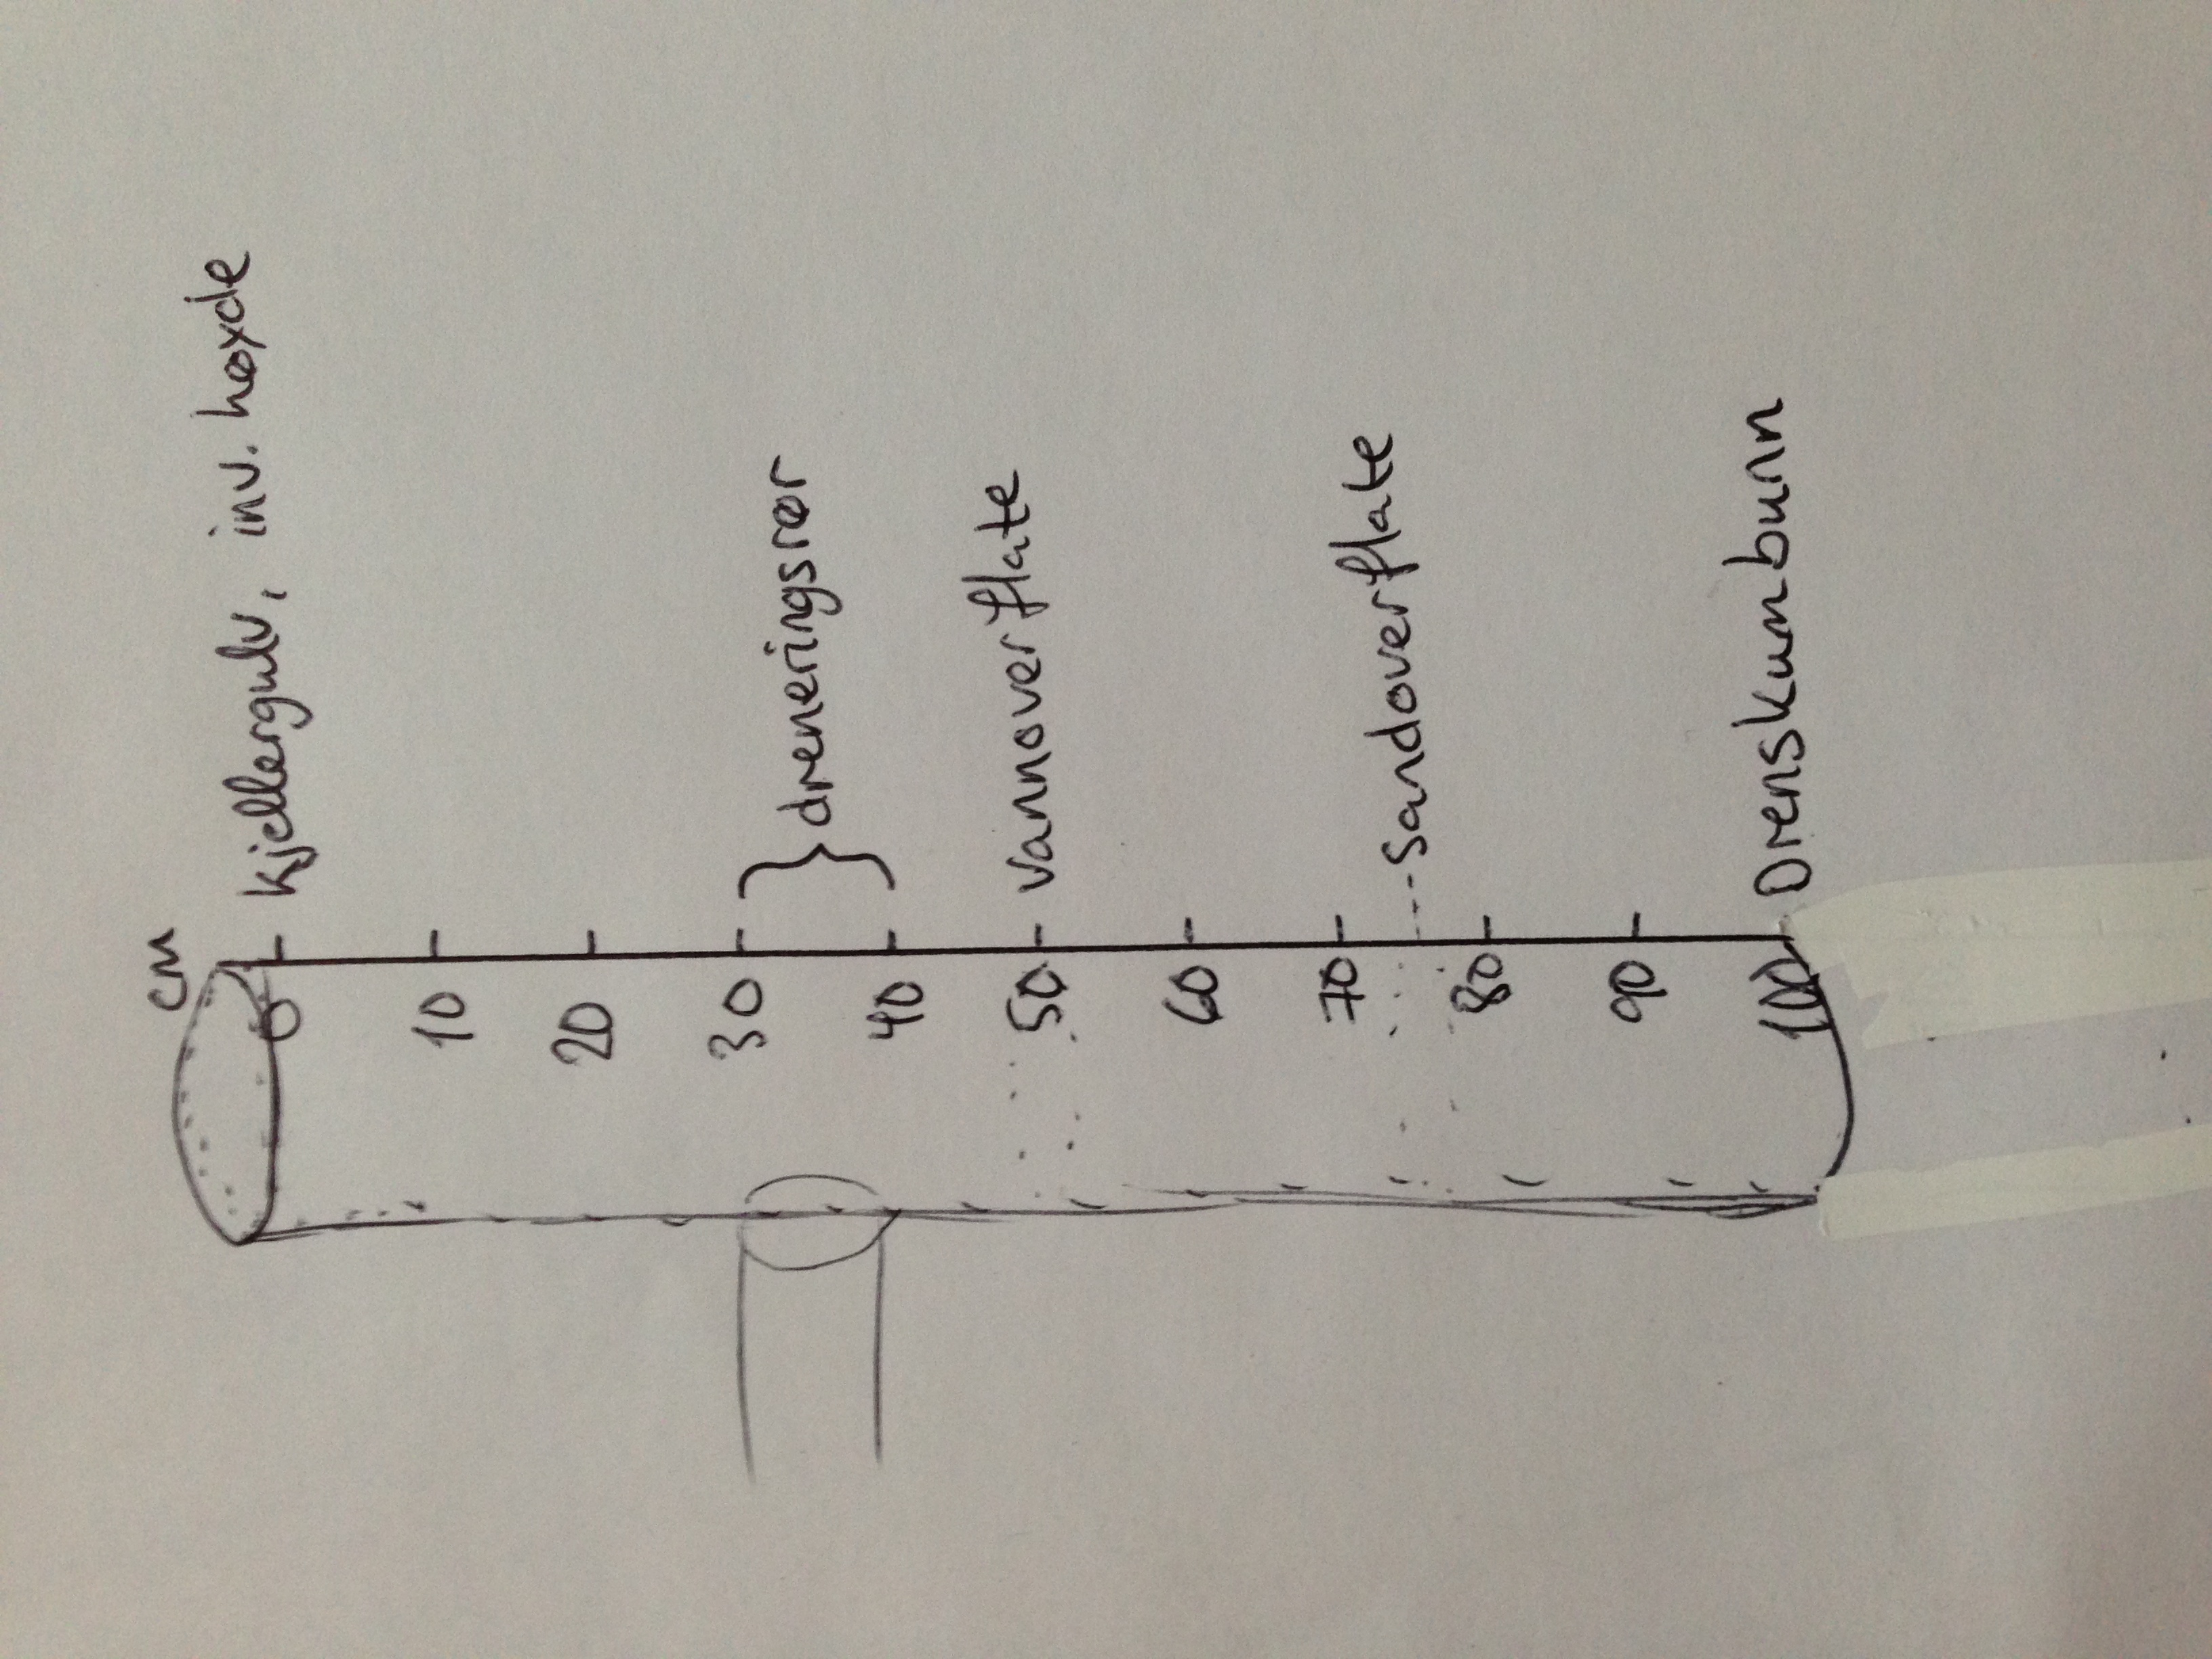 cm
0 Kjellergulv, inv. høyde
10
20
30
} dreneringsrør
40
50 vannoverflate
60
70
sandoverflate
80
90
100 Drenskumbunn